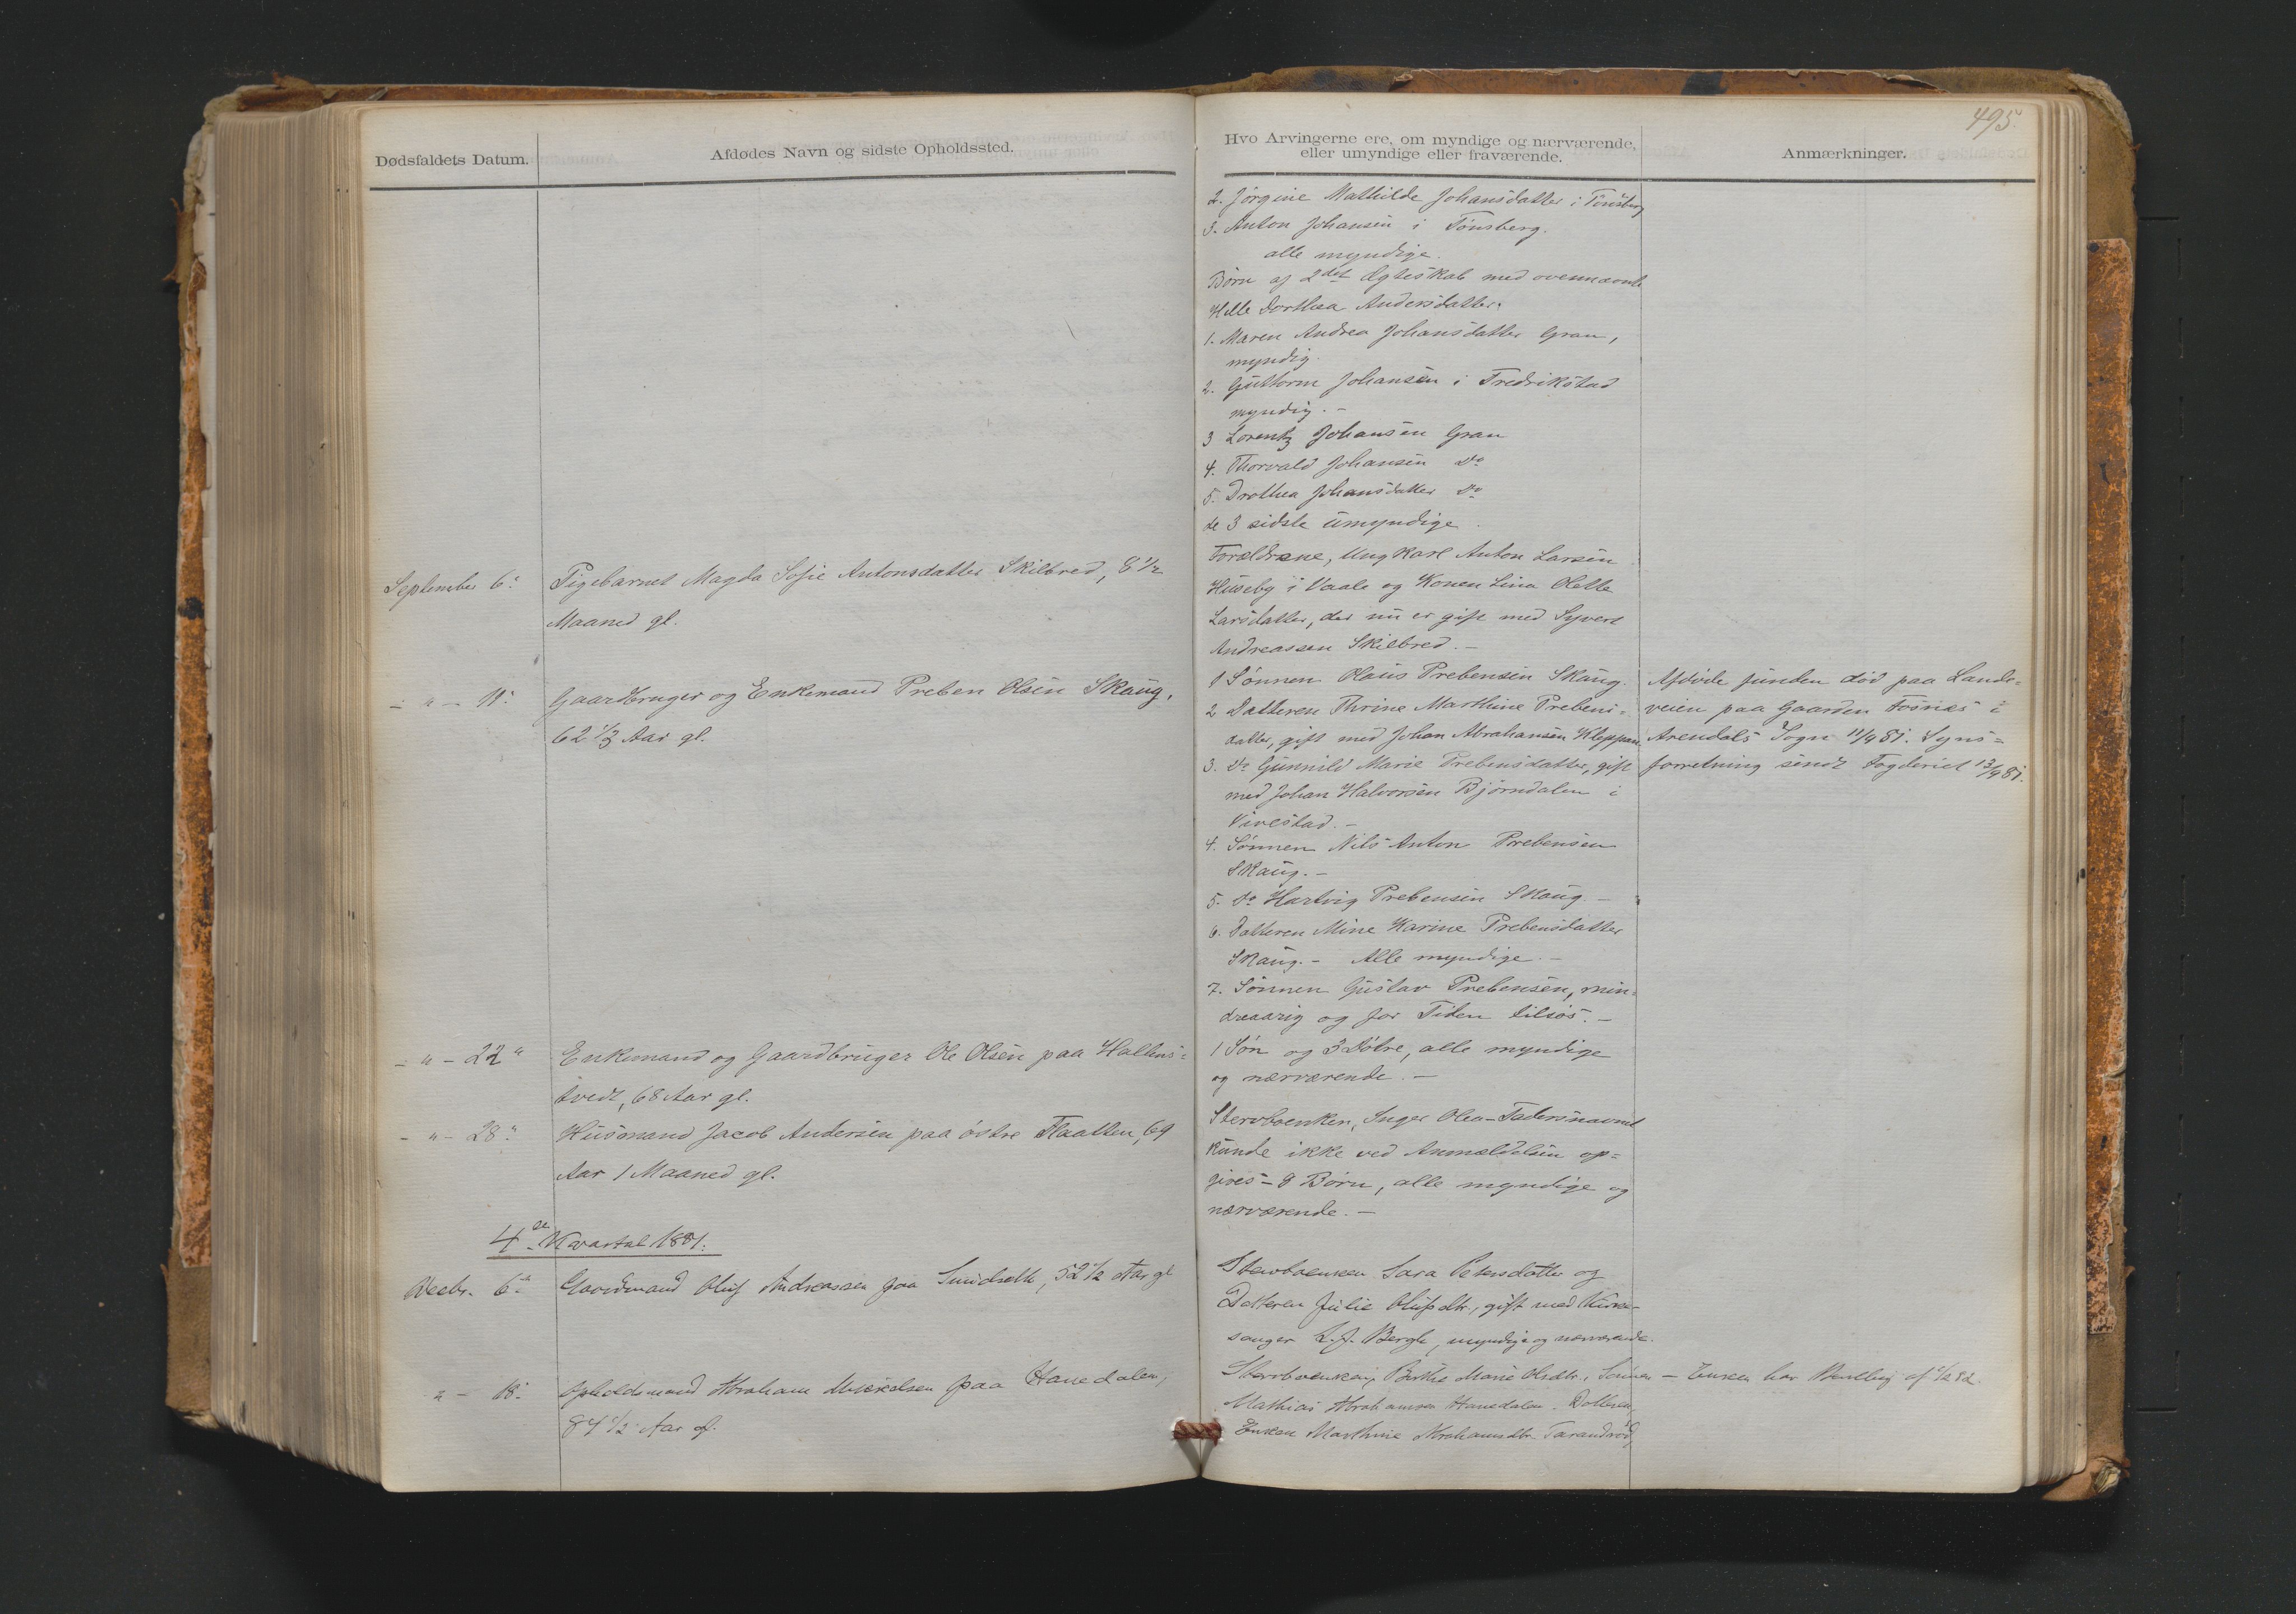 495.
Dødsfaldets Datum.
Afdødes Navn og sidste Opholdssted.
Hvo Arvingerne ere, om myndige og nærværende,
eller umyndige eller fraværende.
Anmærkninger.
2. Jørgine Mathilde Johansdatter i Tønsberg
3. Anton Johansen i Tønsberg.
alle myndige.
Børn af 2det Ægteskab med ovennævnte
Helle Dorthea Andersdatter.
1. Maren Andrea Johansdatter Gran,
myndig.
2. Guttorm Johansen i Fredrikstad
myndig. -
3 Lorentz Johansen Gran
4. Thorvald Johansen do
5. Drothea Johansdatter do
de 3 sidste umyndige.
September 6.
Pigebarnet Magda Sofie Antonsdatter Skilbred, 8 1/2
Maaned gl.
Forældrene, Ungkarl Anton Larsen
Huseby i Vaale og Konen Lina Olette
Larsdatter, der nu er gift med Syvert
Andreassen Skilbred. -
- " - 11.
Gaardbruger og Enkemand Preben Olsen Skaug,
62 1/3 Aar gl.
1 Sønnen Olaus Prebensen Skaug.
2 Datteren Thrine Marthine Prebens=
datter, gift med Johan Abrahamsen Kleppan
3. do Gunnild Marie Prebensdatter, gift
med Johan Halvorsen Bjørndalen i
Vivestad. -
4. Sønnen Nils Anton Prebensen
Skaug. -
5. do Hartvig Prebensen Skaug. -
6. Datteren Mine Karine Prebensdatter
Skaug. - Alle myndige. -
7. Sønnen Gustav Prebensen, min=
dreaarig og for Tiden tilsøs. -
Afdøde funden død paa Lande=
veien paa Gaarden Fosnes i
Arendals Sogn 11/9 81. Syns=
forretning sendt Fogderiet 13/9 81.
- " - 22 "
Enkemand og Gaardbruger Ole Olsen paa Halhus=
tvedt, 68 Aar gl.
1 Søn og 3 Døtre, alle myndige
og nærværende. -
- " - 28 "
Husmand Jacob Andersen paa østre Flaatten, 69
Aar 1 Maaned gl.
Stervboenken, Inger Olea - Fadersnavnet
kunde ikke ved Anmældelsen op=
gives - 8 Børn, alle myndige og
nærværende. -
4de Kvartal 1881.
Decbr. 6.
Gaardmand Oluf Andreassen paa 52 1/2 Aar gl
Stervboenken Sara Petersdatter og
Datteren Julie Olufsdtr., gift med Kirke-
sanger L. J. Bergh, myndige og nærværende.
" - 18.
Opholdsmand Abraham Mikkelsen paa Hanedalen,
84 1/2 Aar gl.
Stervboenken, Birthe Marie Olsdtr., Sønnen
Mathias Abrahamsen Hanedalen. Datteren,
Enken Marthine Abrahamsdtr.
- Enken har Bevilling af 82.